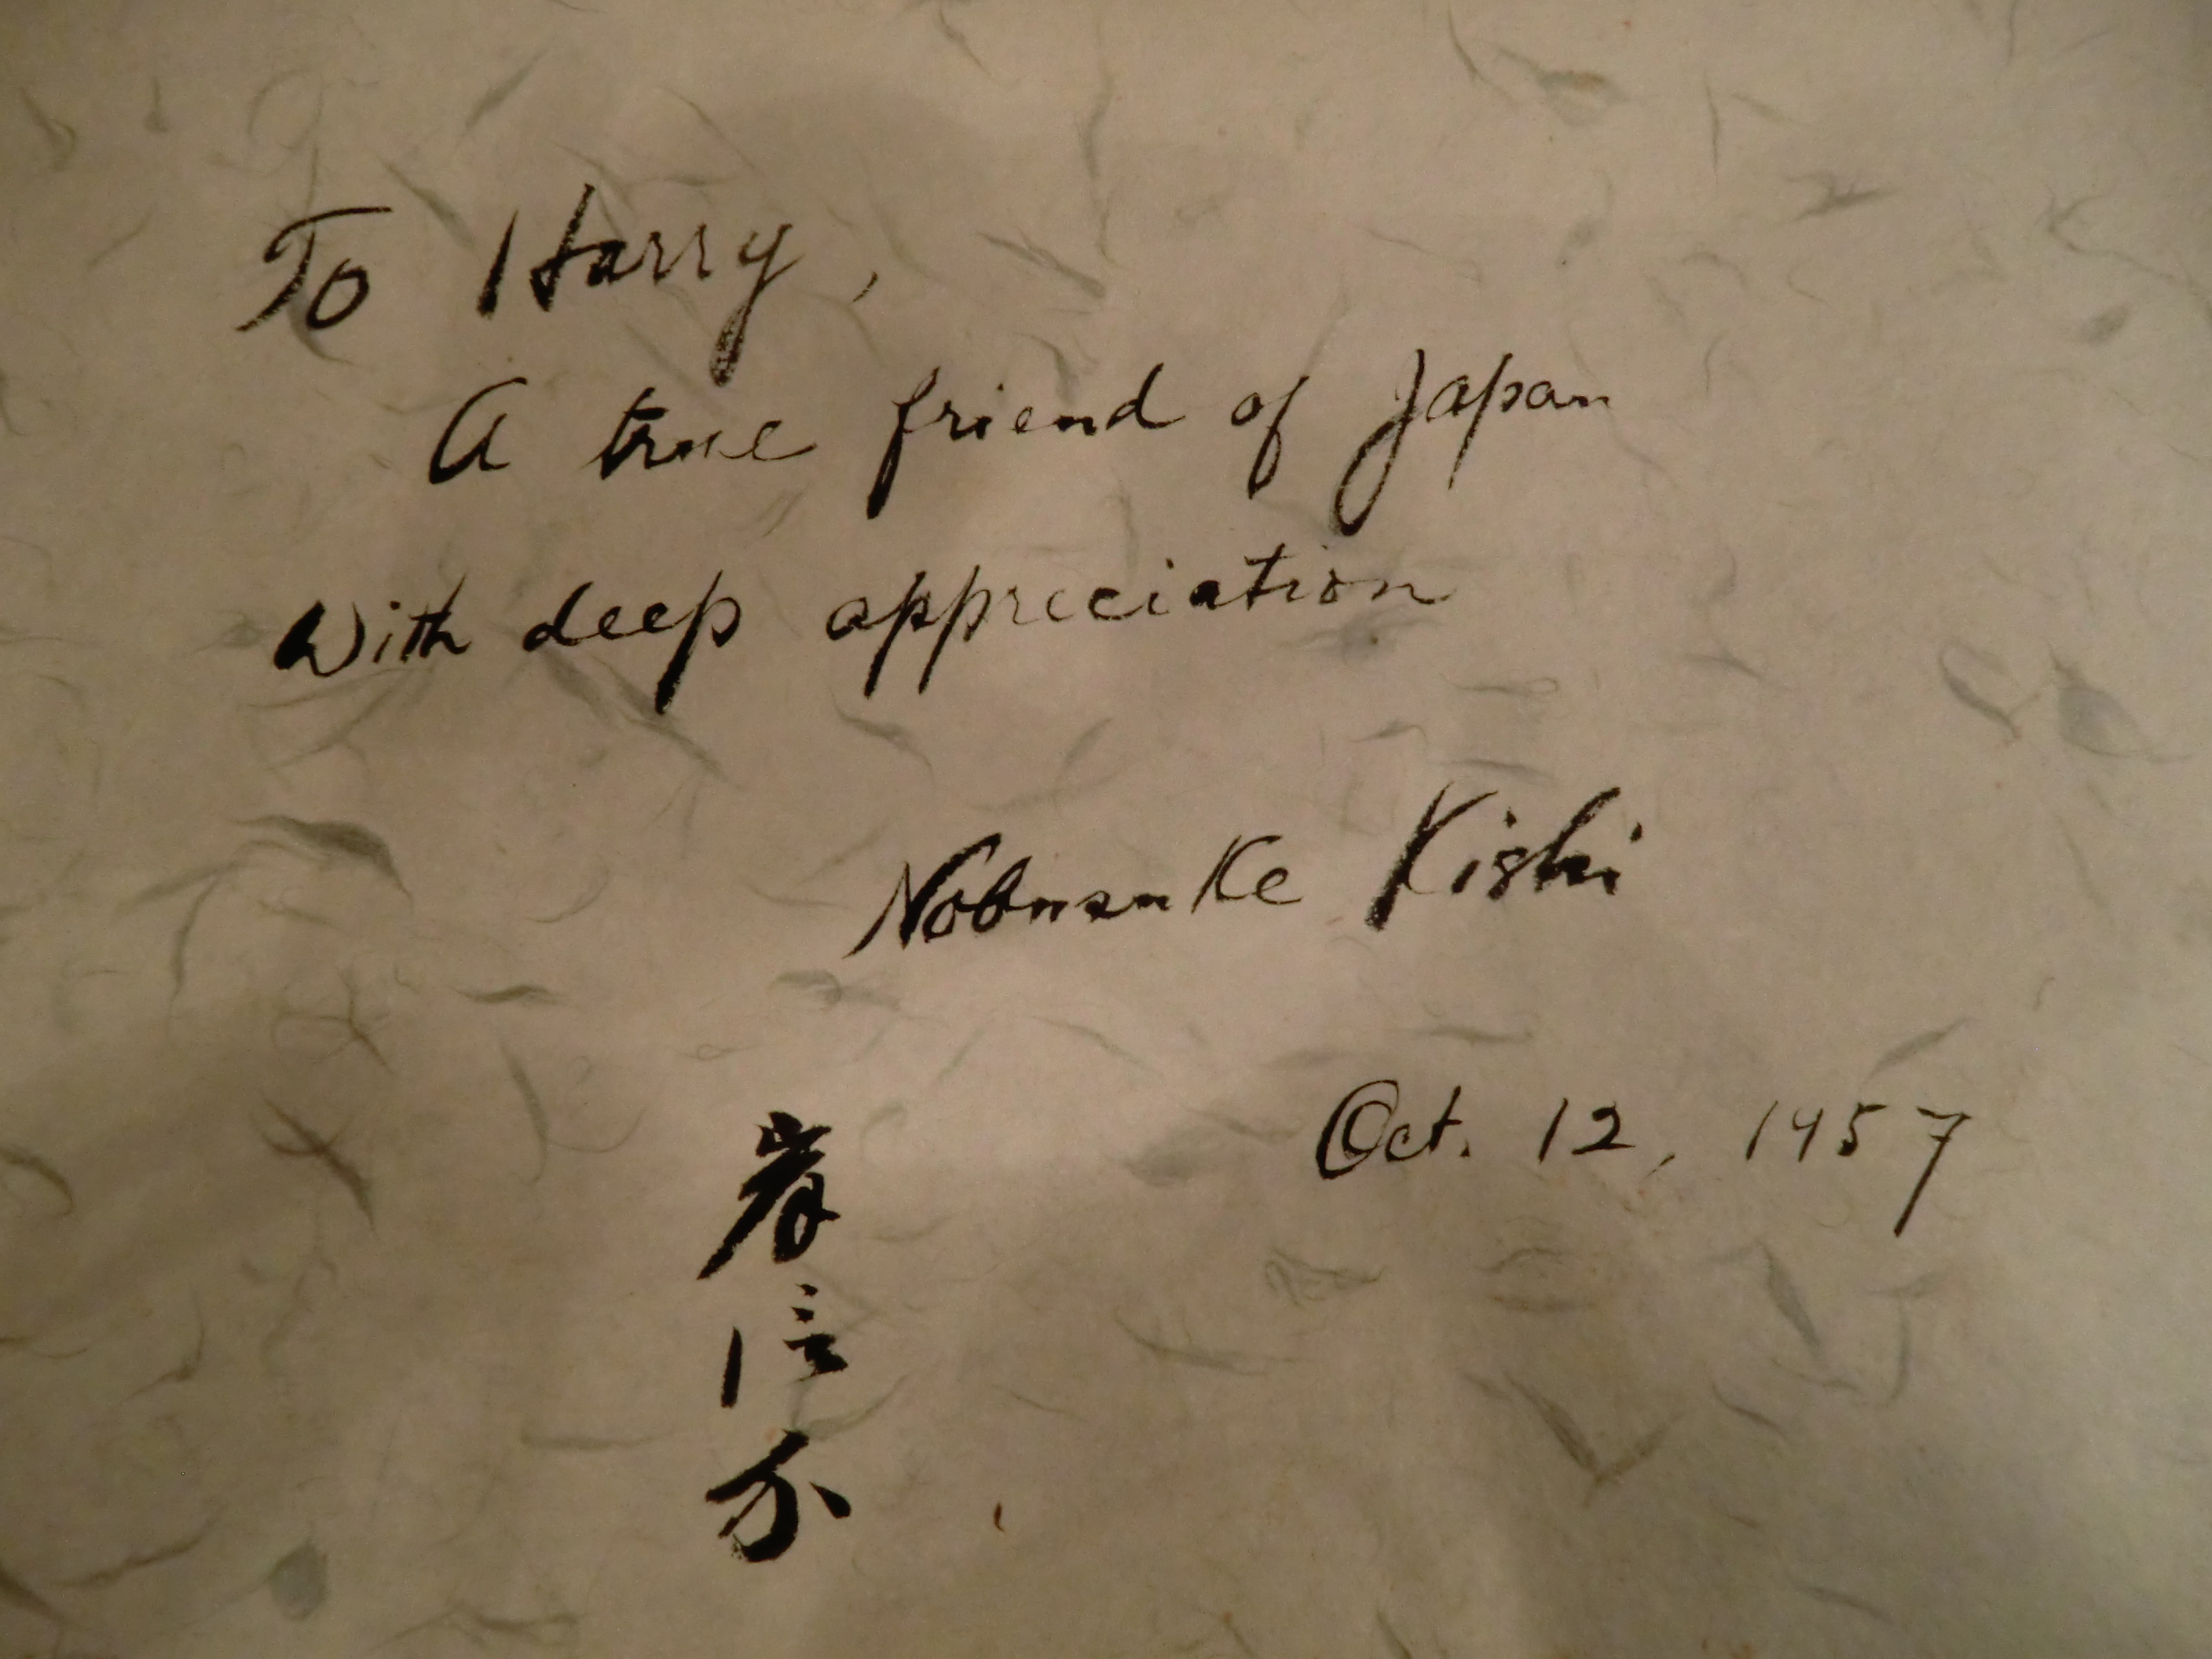 To Harry,
A true friend of Japan
With deep appreciation
Nobusuke Kishi
Oct. 12, 1957
岸信介